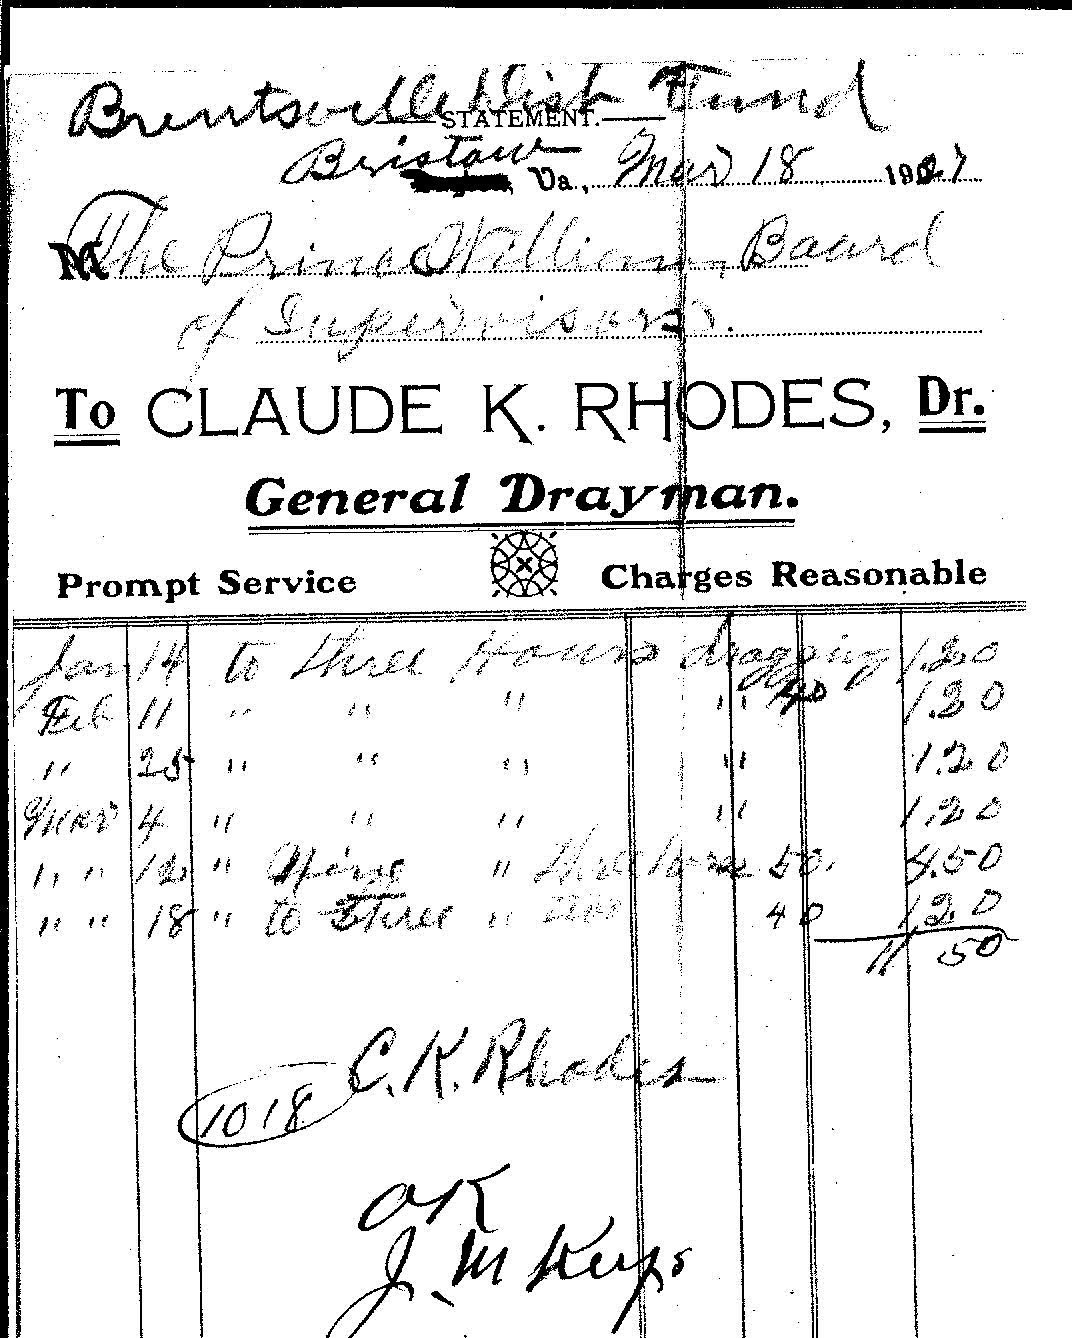 Brentsville Dist Fund
STATEMENT.
Bristow, Va., Mar 18 1927
M The Prince William, Board
of Supervisors.
To CLAUDE K. RHODES, Dr.
General Drayman.
Prompt Service Charges Reasonable
Jan 14 to three Hours dragging 40 1.20
Feb 11 " " " " 1.20
" 25 " " " " 1.20
Mar 4 " " " " 1.20
" " 12 " Nine " three horse 50. 4.50
" " 18 " to three " 40 1.20
11.50
C. K. Rhodes
1018
OK
J. M Keys